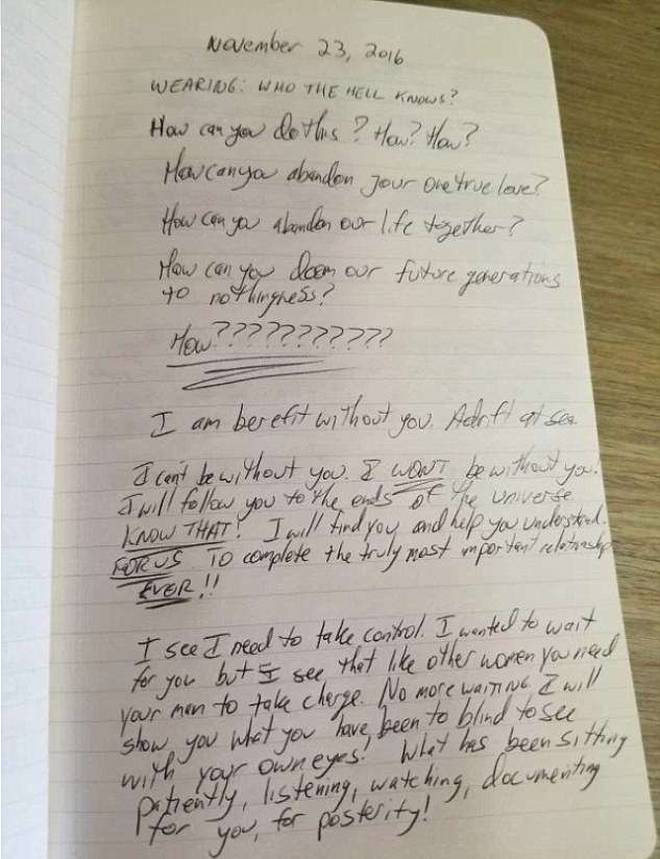 November 23, 2016
WEARING: WHO THE HELL KNOWS?
How can you do this? How? How?
How can you abandon your one true love?
How can you abandon our life together?
How can you doom our future generations
to nothingness?
How???????????
I am berefit without you. Adrift at sea.
I can't be without you. I WON'T be without you.
I will follow you to the ends of the universe
KNOW THAT! I will find you and help you understand.
FOR US. To complete the truly most important relationship
EVER!!
I see I need to take control. I wanted to wait
for you but I see that like other women you need
your man to take charge. No more waiting I will
show you what you have been to blind to see
with your own eyes! What has been sitting
patiently, listening, watching, documenting
for you, for posterity!